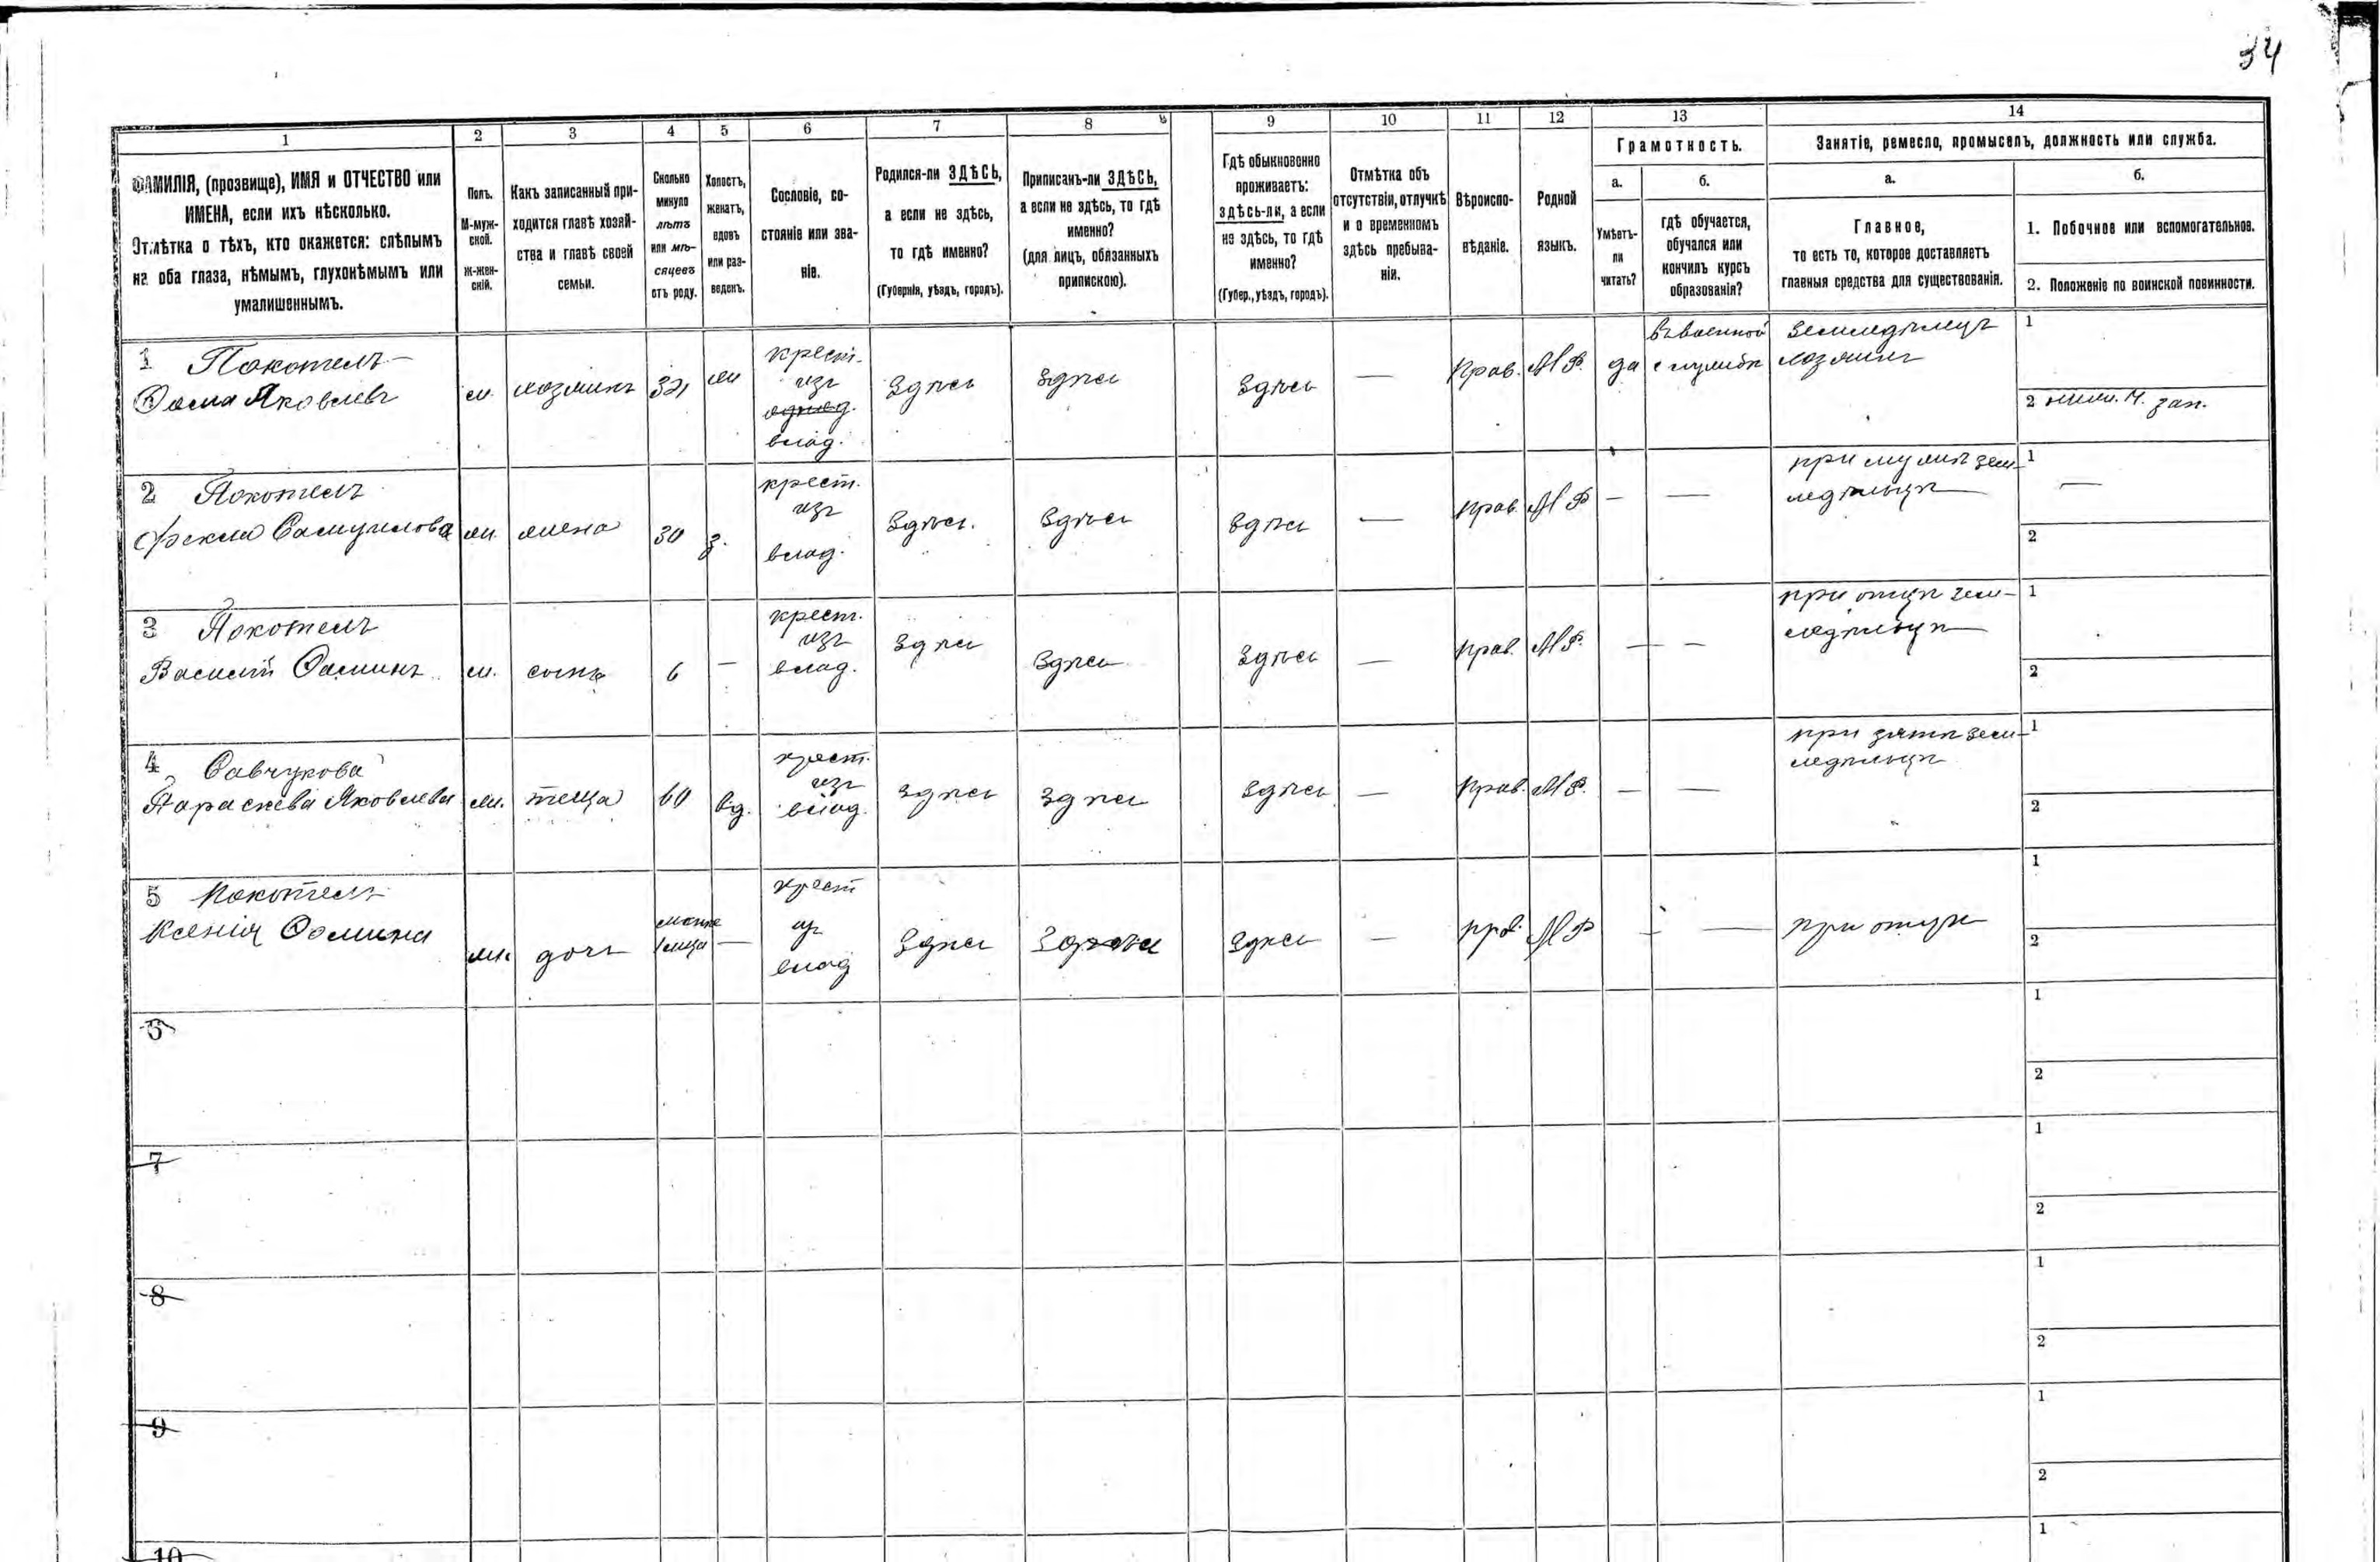 34
1 2 3 4 5 6 7 8 9 10 11 12 13 14
ФАМИЛІЯ, (прозвище), ИМЯ и ОТЧЕСТВО или
ИМЕНА, если ихъ нѣсколько.
Отмѣтка о тѣхъ, кто окажется: слѣпымъ
на оба глаза, нѣмымъ, глухонѣмымъ или
умалишеннымъ.
Полъ.
М-муж-
ской.
Ж-жен-
скій.
Какъ записанный при-
ходится главѣ хозяй-
ства и главѣ своей
семьи.
Сколько
минуло
лѣтъ
или мѣ-
сяцевъ
отъ роду.
Холостъ,
женатъ,
вдовъ
или раз-
веденъ.
Сословіе, со-
стояніе или зва-
ніе.
Родился-ли ЗДѢСЬ,
а если не здѣсь,
то гдѣ именно?
(Губернія, уѣздъ, городъ).
Приписанъ-ли ЗДѢСЬ,
а если не здѣсь, то гдѣ
именно?
(для лицъ, обязанныхъ
припискою).
Гдѣ обыкновенно
проживаетъ:
здѣсь-ли, а если
не здѣсь, то гдѣ
именно?
(Губер., уѣздъ, городъ).
Отмѣтка объ
отсутствіи, отлучкѣ
и о временномъ
здѣсь пребыва-
ніи.
Вѣроиспо-
вѣданіе.
Родной
языкъ.
Грамотность.
а.
Умѣетъ-
ли
читать?
б.
гдѣ обучается,
обучался или
кончилъ курсъ
образованія?
Занятіе, ремесло, промыселъ, должность или служба.
а.
Главное,
то есть то, которое доставляетъ
главныя средства для существованія.
б.
1. Побочное или вспомогательное.
2. Положеніе по воинской повинности.
1 Покотелъ
Ѳома Яковлевъ
м.
хозяинъ
крест.
изъ
однод.
влад.
Здѣсь
Здѣсь
Здѣсь
—
Прав.
М Р.
да
въ военной
службѣ
земледѣлецъ
хозяинъ
1
2 зап.
2 Покотелъ
Самуилова
ж.
жена
30
з.
крест.
изъ
влад.
Здѣсь.
Здѣсь
Здѣсь
—
Прав.
М Р
—
—
при мужѣ зем-
ледѣльцѣ
1 —
2
3 Покотелъ
Василій Ѳоминъ
м.
сынъ
6
—
крест.
изъ
влад.
Здѣсь
Здѣсь
Здѣсь
—
Прав.
М Р.
—
—
при отцѣ зем-
ледѣльцѣ
1
2
4 Савчукова
Параскева Яковлева
ж.
теща
60
вд.
крест.
изъ
влад.
Здѣсь
Здѣсь
Здѣсь
—
Прав.
М Р.
—
—
при зятѣ зем-
ледѣльцѣ
1
2
5 Покотелъ
Ксенія Ѳомина
ж.
дочь
—
крест
из
влад
Здѣсь
Здѣсь
Здѣсь
—
прав.
М Р
—
—
при отцѣ
1
2
6
1
2
7
1
2
8
1
2
9
1
2
10
1